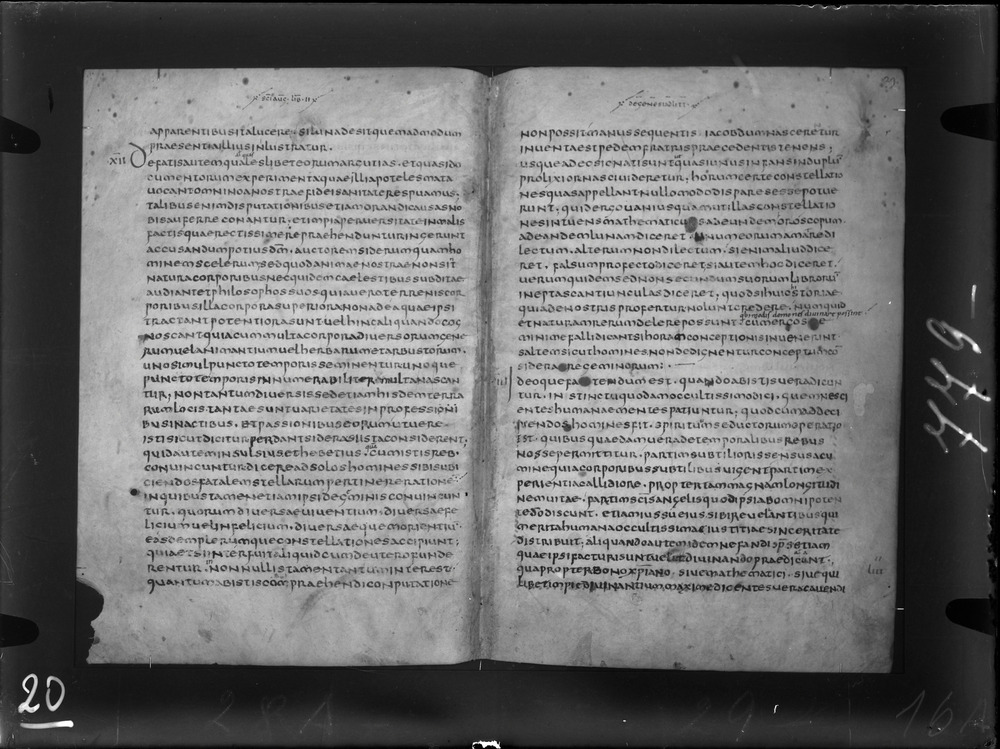 SCI AUG · LIB · II
APPARENTIBUS ITA LUCERE · SI LUNA DESIT QUEMADMODUM
PRAESENTIA ILLIUS INLUSTRATUR ·
XII DE FATIS AUTEM QUALESLIBET EORUM ARGUTIAS · ET QUASI DO
CUMENTORUM EXPERIMENTA QUAE ILLI APOTELESMATA
UOCANT OMNINO A NOSTRAE FIDEI SANITATE RESPUAMUS ·
TALIBUS ENIM DISPUTATIONIBUS ETIAM ORANDI CAUSAS NO
BIS AUFERRE CONANTUR · ET IMPIA PERUERSITATE IN MALIS
FACTIS QUAE RECTISSIME REPRAEHENDUNTUR INGERUNT
ACCUSANDUM POTIUS DM · AUCTOREM SIDERUM QUAM HO
MINEM SCELERUM · SED QUOD ANIMAE NOSTRAE NON SINT
NATURA CORPORIBUS NEC QUIDEM CAELESTIBUS SUBDITAE
AUDIANT ET PHILOSOPHOS SUOS QUIA UERA TERRENIS COR
PORIBUS ILLA CORPORA SUPERIORA NON AD EA QUAE IPSI
TRACTANT POTENTIORA SUNT UEL HINC ALIQUANDO COG
NOSCANT QUIA CUM MULTA CORPORA DIUERSORUM GENE
RUM UEL ANIMANTIUM UEL HERBARUM ET ARBUSTORUM ·
UNO SIMUL PUNCTO TEMPORIS SEMINENTUR UNOQUE
PUNCTO TEMPORIS INNUMERABILITER MULTA NASCAN
TUR · NON TANTUM DIUERSIS SED ETIAM HISDEM TERRA
RUM LOCIS · TANTAE SUNT UARIETATES IN PROFESSIONI
BUS IN ACTIBUS · ET PASSIONIBUS EORUM UT UERE ·
ISTI SICUT DICITUR PERDANT SIDERA SI ISTA CONSIDERENT ·
QUID AUTEM INSULSIUS ET HEBETIUS · CUM ISTIS REB
CONUINCUNTUR DICERE AD SOLOS HOMINES SIBI SUBI
CIENDOS FATALEM STELLARUM PERTINERE RATIONE
IN QUIBUS TAMEN ETIAM IPSI DE GEMINIS CONUINCUN
TUR · QUORUM DIUERSAE UIUENTIUM · DIUERSAE FE
LICIUM UEL INFELICIUM · DIUERSAEQUE MORIENTIU
EASDEM PLERUMQUE CONSTELLATIONES ACCIPIUNT ·
QUIA ETSI INTERFUIT ALIQUID CUM DE UTERO FUNDE
RENTUR · NONNULLIS TAMEN TANTUM INTEREST ·
QUANTUM AB ISTIS COMPRAEHENDI CONPUTATIONE
DE GENESI AD LITT ·
NON POSSIT MANUS SEQUENTIS · IACOB DUM NASCERETUR
INUENTA EST PEDEM FRATRIS PRAECEDENTIS TENENS ·
USQUE ADEO SIC NATI SUNT QUASI UNUS INFANS IN DUPLU
PROLIXIOR NASCI UIDERETUR · HORUM CERTE CONSTELLATIO
NES QUAS APPELLANT NULLO MODO DISPARES ESSE POTUE
RUNT · QUID ERGO UANIUS QUAM UT ILLAS CONSTELLATIO
NES INTUENS MATHEMATICUS AD EUNDEM OROSCOPUM
AD EANDEM LUNAM DICERET · UNUM EORUM A MATRE DI
LECTUM · ALTERUM NON DILECTUM · SI ENIM ALIUD DICE
RET · FALSUM PROFECTO DICERET SI AUTEM HOC DICERET ·
UERUM QUIDEM SED NON SECUNDUM SUORUM LIBRORU
INEPTAS CANTIUNCULAS DICERET · QUOD SI HUIC STORIAE
QUIA DE NOSTRIS PROFERTUR NOLUNT CREDERE · NUMQUID
ET NATURAM RERUM DELERE POSSUNT · CUM ERGO SE
MINIME FALLI DICANT SI HORAM CONCEPTIONIS INUENERINT
SALTEM SICUT HOMINES NON DEDIGNENTUR CONCEPTUM CO
SIDERARE GEMINORUM ·
IDEOQUE FATENDUM EST · QUANDO AB ISTIS UERA DICUN
TUR · INSTINCTU QUODAM OCCULTISSIMO DICI · QUEM NESCI
ENTES HUMANAE MENTES PATIUNTUR · QUOD CUM AD DECI
PIENDOS HOMINES FIT · SPIRITUM SEDUCTORUM OPERATIO
EST · QUIBUS QUAEDAM UERA DE TEMPORALIBUS REBUS
NOSSE PERMITTITUR · PARTIM SUBTILIORIS SENSUS ACU
MINE QUIA CORPORIBUS SUBTILIBUS UIGENT PARTIM EX
PERIENTIA CALLIDIORE · PROPTER TAM MAGNAM LONGITUDI
NEM UITAE · PARTIM SCIS ANGELIS QUOD IPSI AB OMNIPOTEN
TE DO DISCUNT · ETIAM IUSSU EIUS SIBI REUELANTIBUS QUI
MERITA HUMANA OCCULTISSIMAE IUSTITIAE SINCERITATE
DISTRIBUIT · ALIQUANDO AUTEM IDEM NEFANDI SPS ETIAM
QUAE IPSI FACTURI SUNT UELUT DIUINANDO PRAEDICANT ·
QUAPROPTER BONO XPIANO · SIUE MATHEMATICI · SIUE QUI
LIBET IMPIE DIUINANTIUM MAXIME DICENTES UERA CAUENDI
20
779